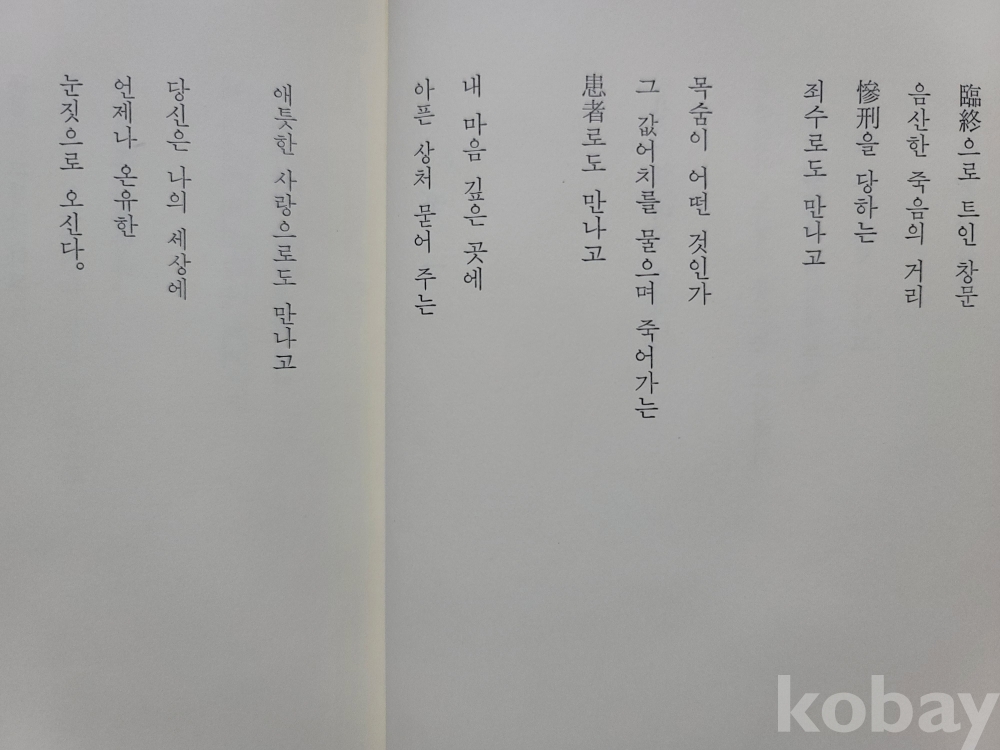 臨終으로 트인 창문
음산한 죽음의 거리
慘刑을 당하는
죄수로도 만나고
목숨이 어떤 것인가
그 값어치를 물으며 죽어가는
患者로도 만나고
내 마음 깊은 곳에
아픈 상처 묻어 주는
애틋한 사랑으로도 만나고
당신은 나의 세상에
언제나 온유한
눈짓으로 오신다。
kobay